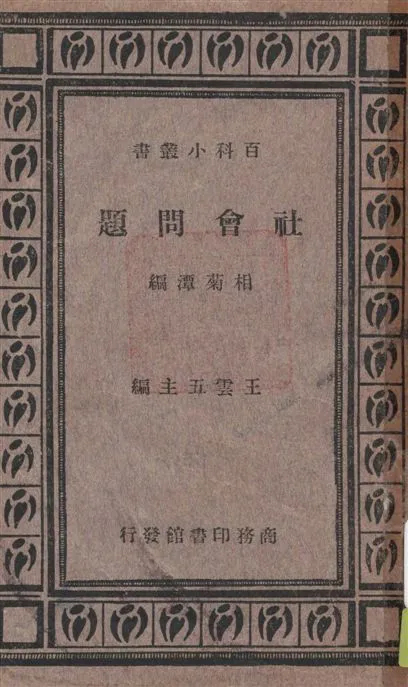 百科小叢書
社會問題
相菊潭編
王雲五主編
商務印書館發行